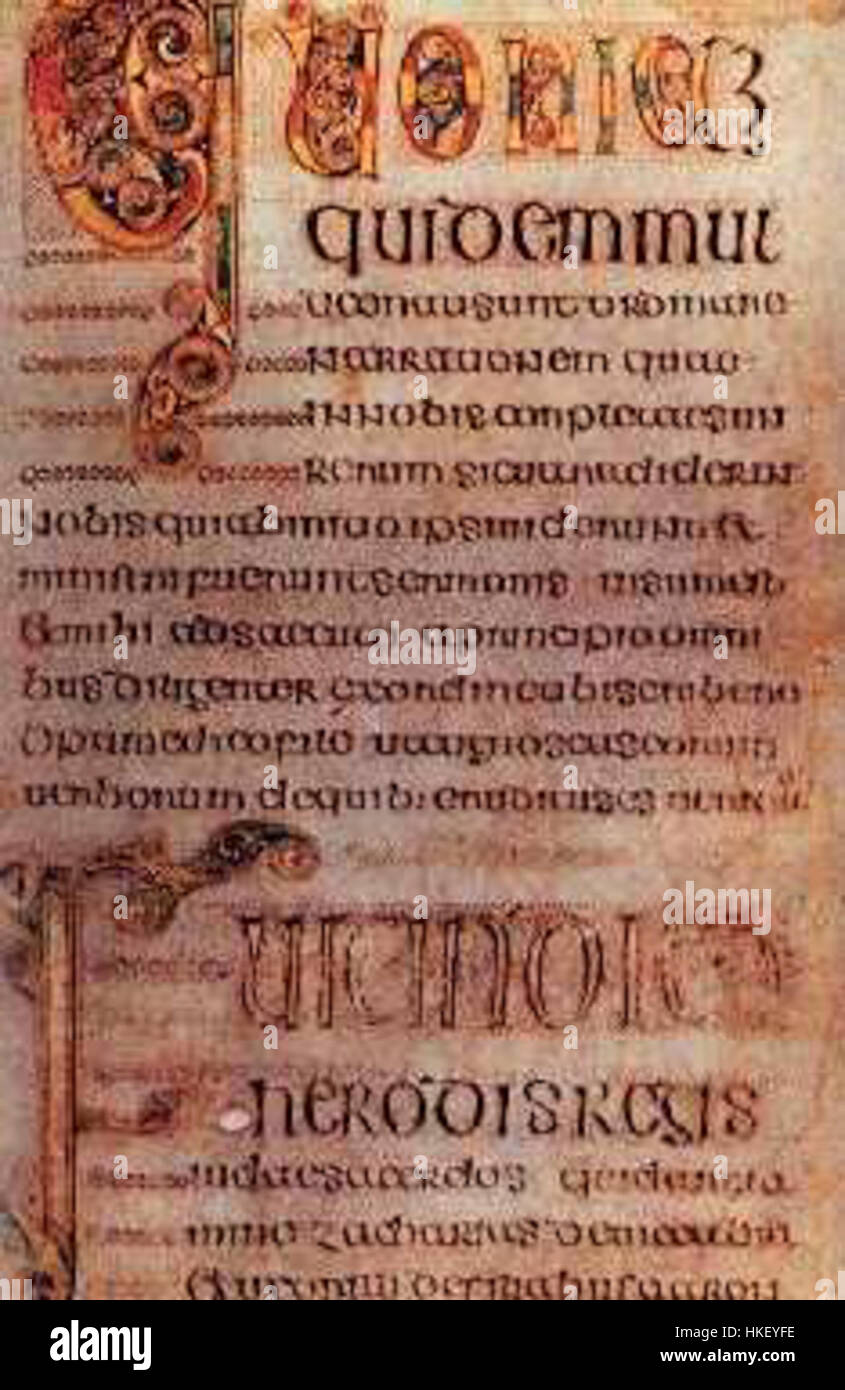 quoniam
quidem mul
ti conati sunt ordinare
narrationem quae
in nobis conpletae sun
rerum sicut tradiderun
nobis qui ab initio ipsi uiderunt et
ministri fuerunt sermonis uisum est
et mihi adsecuto a principio omni
bus diligenter ex ordine tibi scribere
optime ut cognoscas eorum
uerborum de quib: eruditus es uerita
herodis regis
iudae sacerdos quidam
mine zacharias de uice abia
filiabus aaron
alamy
Image ID: HKEYFE
www.alamy.com